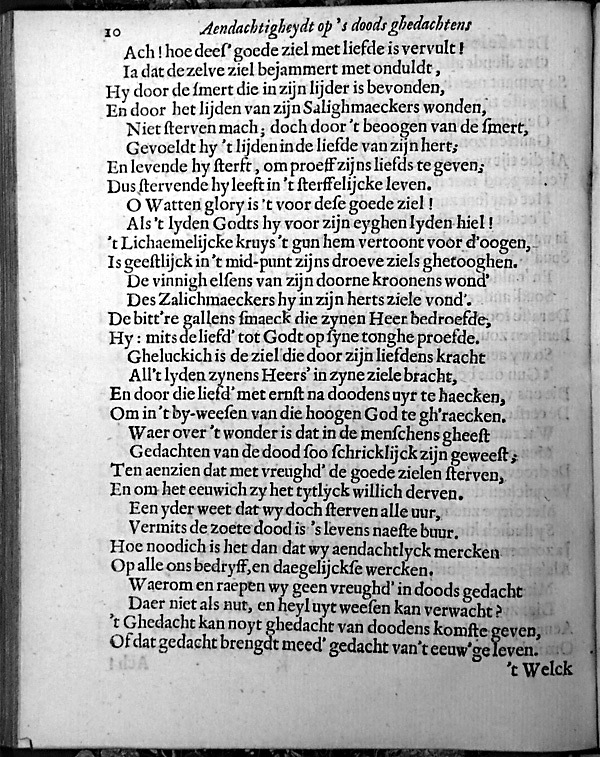 10 Aendachtigheydt op 's doods ghedachtens
Ach! hoe deeſ' goede ziel met liefde is vervult!
Ia dat de zelve ziel bejammert met onduldt,
Hy door de ſmert die in zijn lijder is bevonden,
En door het lijden van zijn Salighmaeckers wonden,
Niet ſterven mach; doch door 't beoogen van de ſmert,
Gevoeldt hy 't lijden in de liefde van zijn hert;
En levende hy ſterft, om proeff zijns liefds te geven;
Dus ſtervende hy leeft in 't ſterffelijcke leven.
O Watten glory is 't voor deſe goede ziel!
Als 't lyden Godts hy voor zijn eyghen lyden hiel!
't Lichaemelijcke kruys 't gun hem vertoont voor d'oogen,
Is geeſtlijck in 't mid-punt zijns droeve ziels ghetooghen.
De vinnigh elſens van zijn doorne kroonens wond'
Des Zalichmaeckers hy in zijn herts ziele vond'.
De bitt're gallens ſmaeck die zynen Heer bedroefde,
Hy: mits de liefd' tot Godt op ſyne tonghe proefde.
Gheluckich is de ziel die door zijn liefdens kracht
All't lyden zynens Heers' in zyne ziele bracht,
En door die liefd' met ernſt na doodens uyr te haecken,
Om in 't by-weeſen van die hoogen God te gh'raecken.
Waer over 't wonder is dat in de menſchens gheeſt
Gedachten van de dood ſoo ſchricklijck zijn geweeſt;
Ten aenzien dat met vreughd' de goede zielen ſterven,
En om het eeuwich zy het tytlyck willich derven.
Een yder weet dat wy doch ſterven alle uur,
Vermits de zoete dood is 's levens naeſte buur.
Hoe noodich is het dan dat wy aendachtlyck mercken
Op alle ons bedryff, en daegelijckſe wercken.
Waerom en raepen wy geen vreughd' in doods gedacht
Daer niet als nut, en heyl uyt weeſen kan verwacht?
't Ghedacht kan noyt ghedacht van doodens komſte geven,
Of dat gedacht brengdt meed' gedacht van't eeuw'ge leven.
't Welck